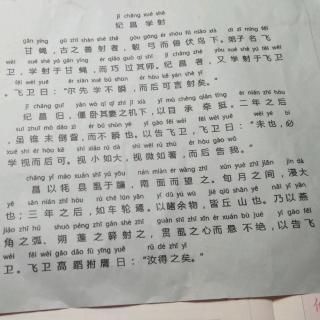 jǐ chāng xué shè
纪昌学射
gān yíng gǔ zhī shàn shè zhě gòu gōng ér shòu fú niǎo xià dì zǐ míng fēi
甘蝇，古之善射者，彀弓而兽伏鸟下。弟子名飞
wèi xué shè yú gān yíng ér qiǎo guò qí shī jǐ chāng zhě yòu xué shè yú fēi
卫，学射于甘蝇，而巧过其师。纪昌者，又学射于飞
wèi fēi wèi yuē ěr xiān xué bú shùn ér hòu kě yán shè yǐ
卫。飞卫曰：“尔先学不瞬，而后可言射矣。”
jǐ chāng guī yǎn wò qí qī zhī jī xià yǐ mù chéng qiān tǐng èr nián zhī hòu
纪昌归，偃卧其妻之机下，以目承牵挺。二年之后
suī zhuī mò dào zì ér bú shùn yě yǐ gào fēi wèi fēi wèi yuē wèi yě bì
，虽锥末倒眥，而不瞬也。以告飞卫，飞卫曰：“未也，必
xué shì ér hòu kě shì xiǎo rú dà shì wēi rú zhù ér hòu gào wǒ
学视而后可。视小如大，视微如著，而后告我。”
chāng yǐ máo xuán shī yú yǒu nán miàn ér wàng zhī xún yuè zhī jiān jìn dà
昌以牦县虱于牖，南面而望之。旬月之间，浸大
yě sān nián zhī hòu rú chē lún yān yǐ dǔ yú wù jiē qiū shān yě nǎi yǐ yān
也；三年之后，如车轮焉。以睹余物，皆丘山也。乃以燕
jiǎo zhī hú shuò péng zhī gǎn shè zhī guàn shī zhī xīn ér xuán bù jué yǐ gào fēi
角之弧、朔蓬之簳射之，贯虱之心而悬不绝，以告飞
wèi fēi wèi gāo dǎo fǔ yīng yuē rǔ dé zhī yǐ
卫。飞卫高蹈拊膺曰：“汝得之矣。”